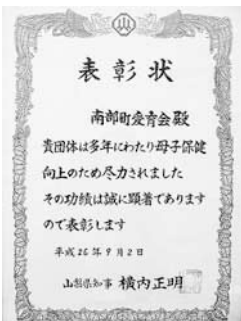 表彰状
南部町愛育会殿
貴団体は多年にわたり母子保健
向上のため尽力されました
その功績は誠に顕著であります
ので表彰します
平成26年9月2日
山梨県知事 横内正明